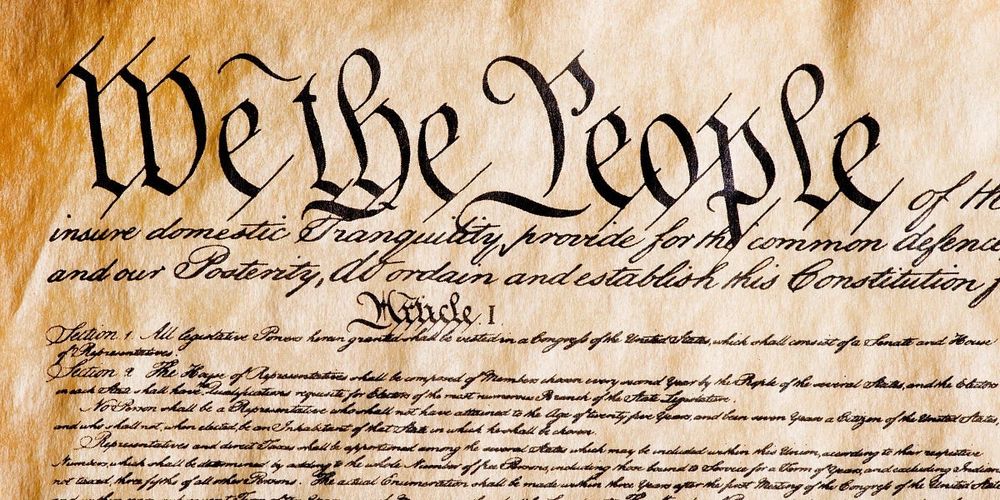 We the People of the
insure domestic Tranquility, provide for the common defence
and our Posterity, do ordain and establish this Constitution f
Article. I.
Section. 1. All legislative Powers herein granted shall be vested in a Congress of the United States, which shall consist of a Senate and House
of Representatives.
Section. 2. The House of Representatives shall be composed of Members chosen every second Year by the People of the several States, and the Electors
in each State shall have Qualifications requisite for Electors of the most numerous Branch of the State Legislature.
No Person shall be a Representative who shall not have attained to the Age of twenty five Years, and been seven Years a Citizen of the United States,
and who shall not, when elected, be an Inhabitant of that State in which he shall be chosen.
Representatives and direct Taxes shall be apportioned among the several States which may be included within this Union, according to their respective
Numbers, which shall be determined by adding to the whole Number of free Persons, including those bound to Service for a Term of Years, and excluding Indians
not taxed, three fifths of all other Persons. The actual Enumeration shall be made within three Years after the first Meeting of the Congress of the United States